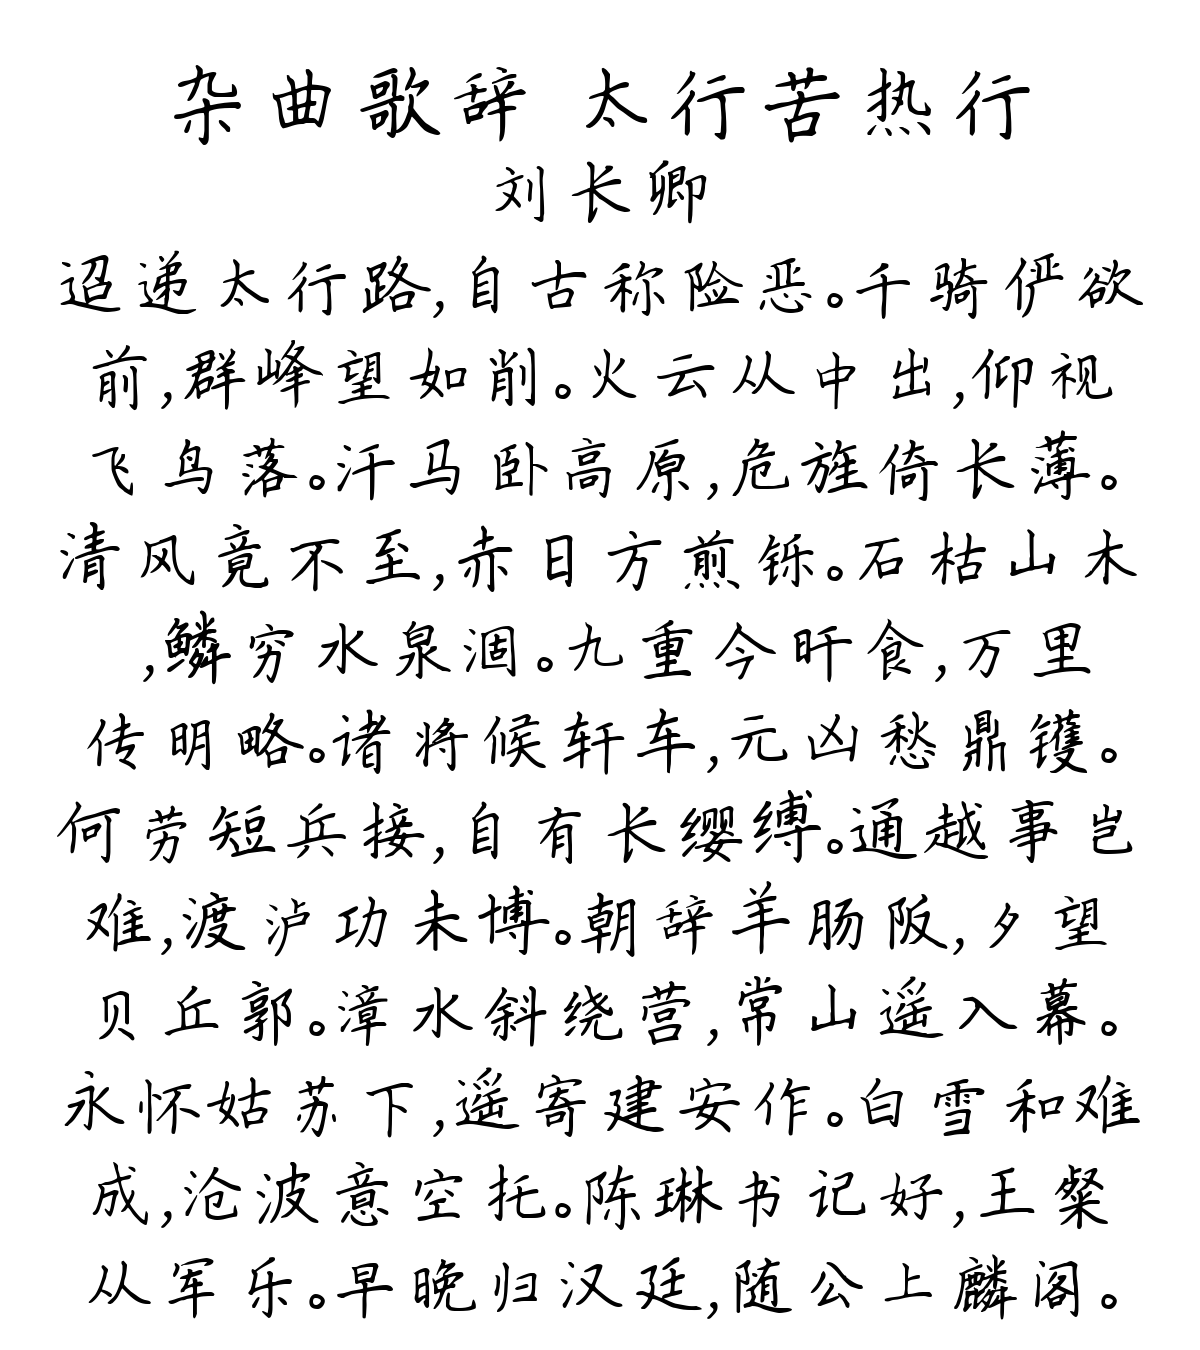 杂曲歌辞 太行苦热行
刘长卿
迢递太行路,自古称险恶。千骑俨欲
前,群峰望如削。火云从中出,仰视
飞鸟落。汗马卧高原,危旌倚长薄。
清风竟不至,赤日方煎铄。石枯山木
,鳞穷水泉涸。九重今旰食,万里
传明略。诸将候轩车,元凶愁鼎镬。
何劳短兵接,自有长缨缚。通越事岂
难,渡泸功未博。朝辞羊肠阪,夕望
贝丘郭。漳水斜绕营,常山遥入幕。
永怀姑苏下,遥寄建安作。白雪和难
成,沧波意空托。陈琳书记好,王粲
从军乐。早晚归汉廷,随公上麟阁。